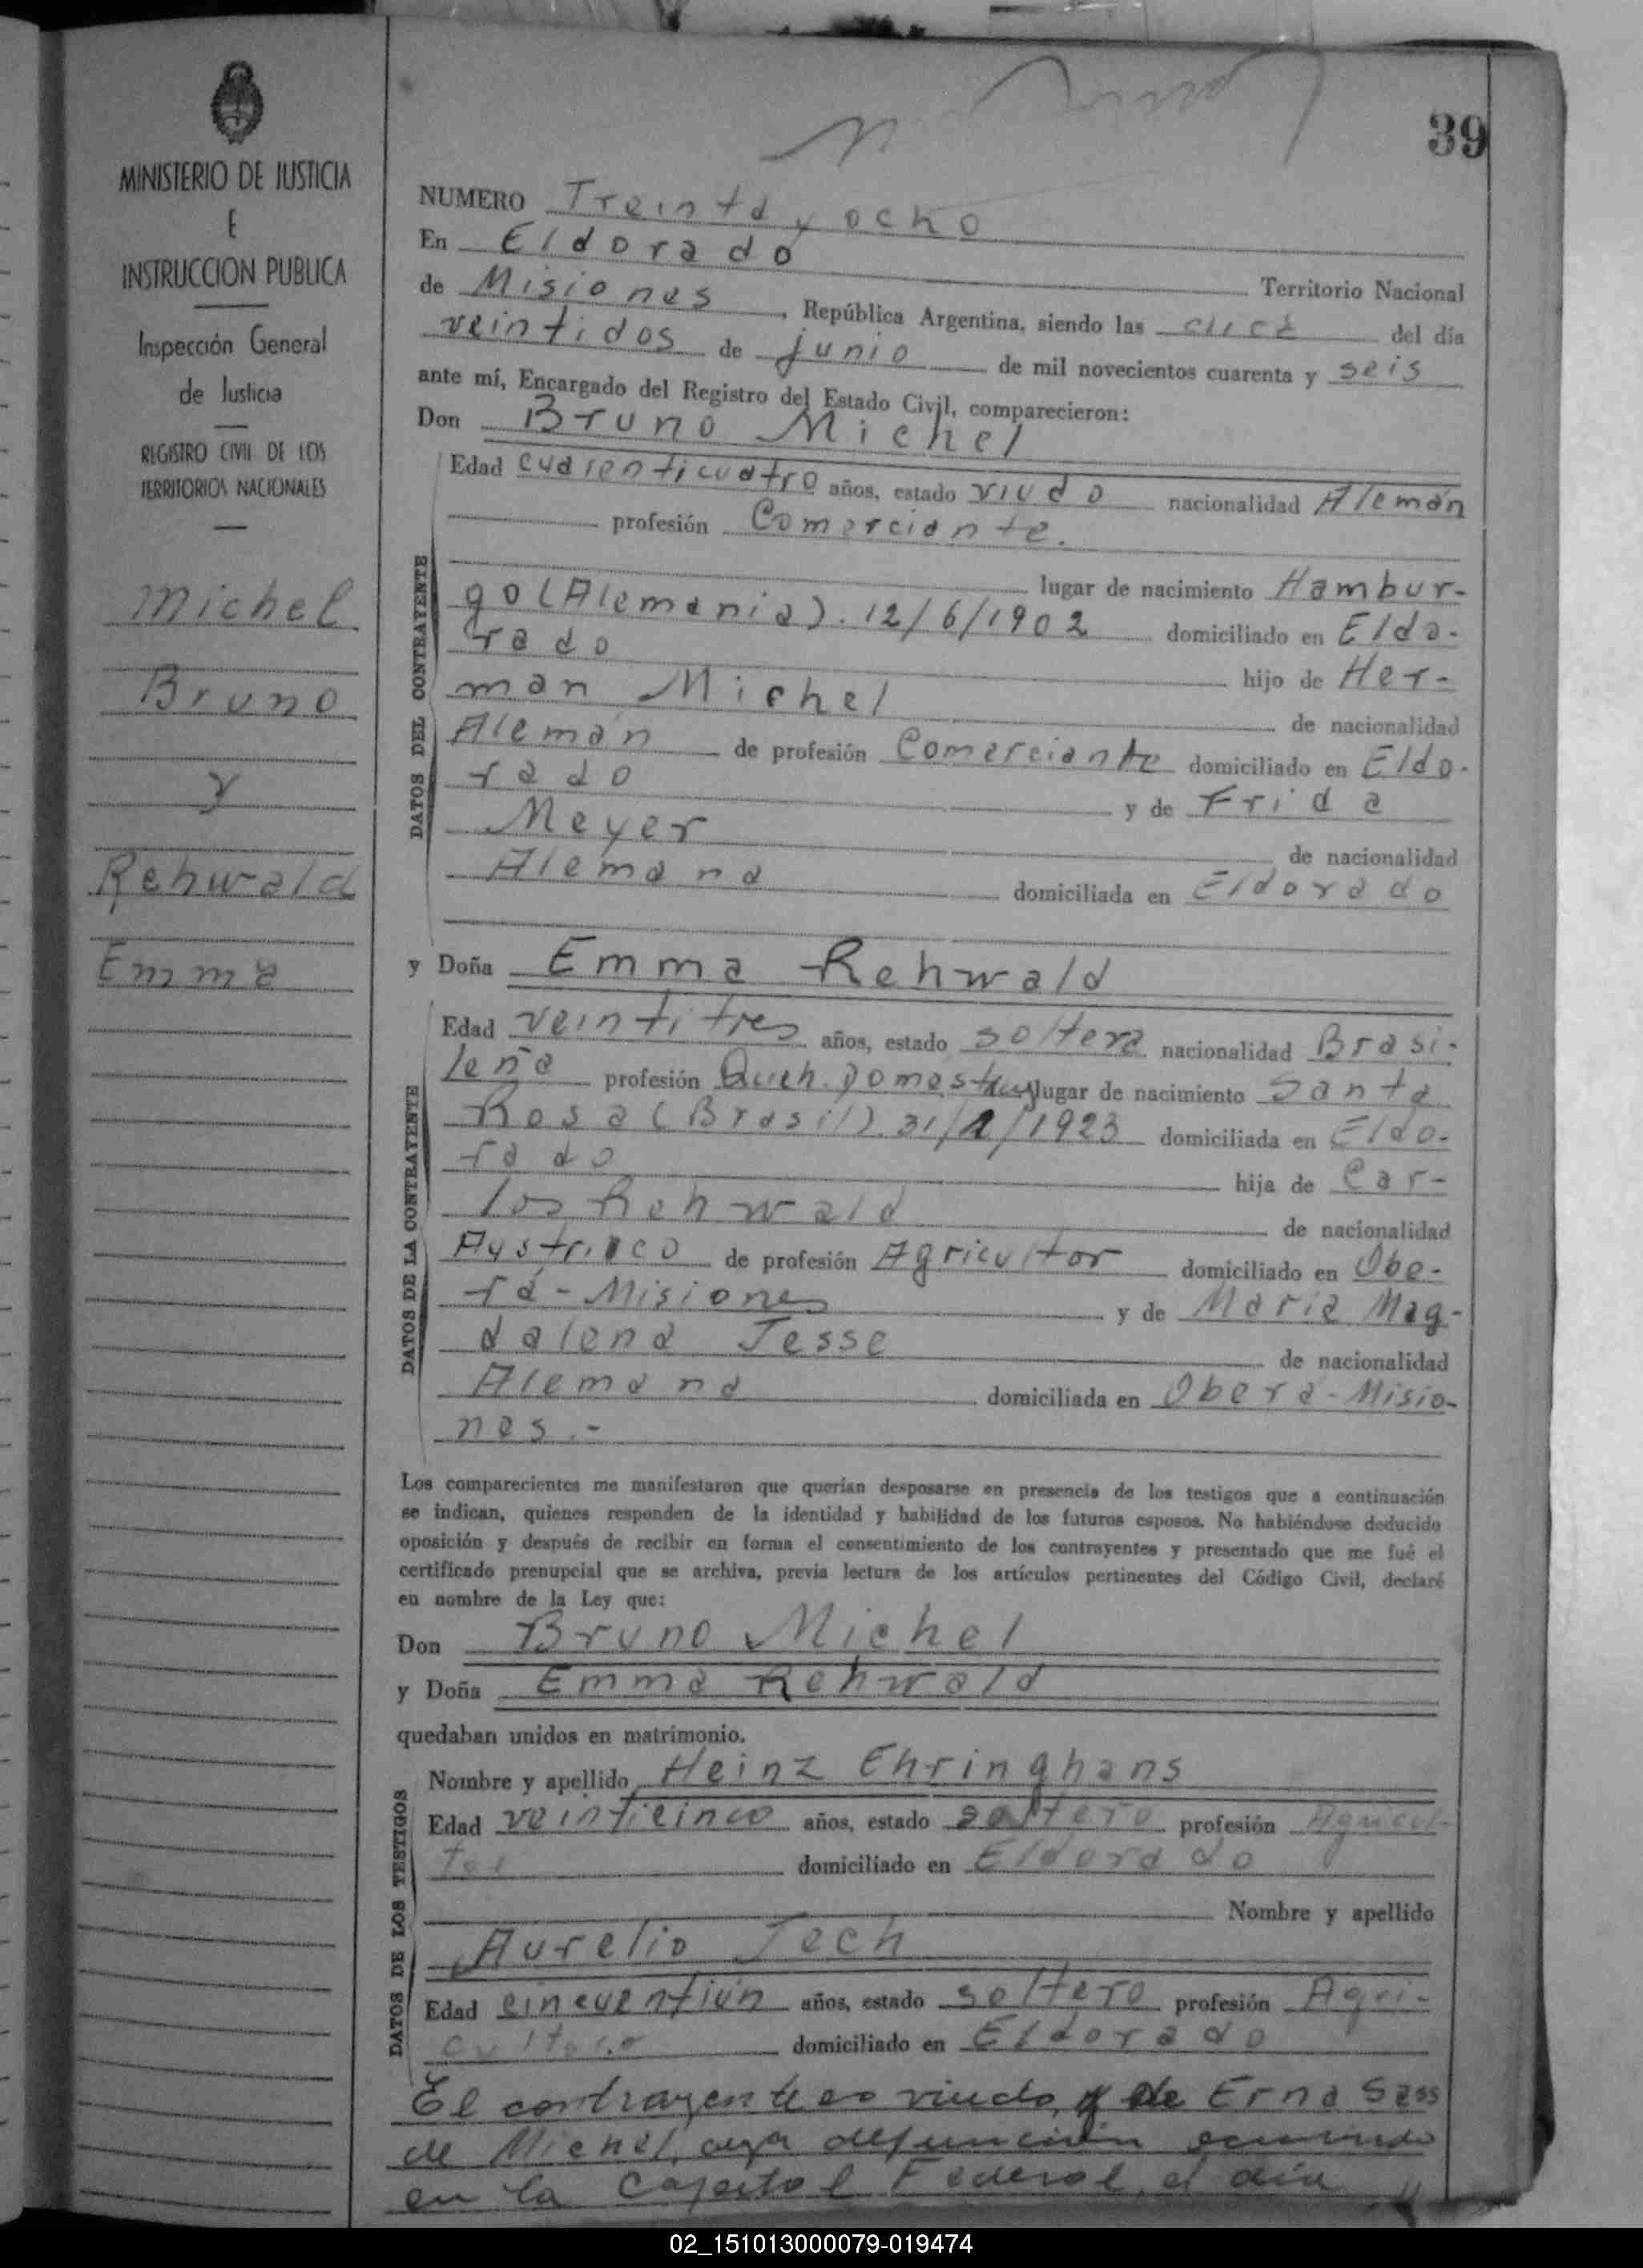 39
MINISTERIO DE JUSTICIA
E
INSTRUCCION PUBLICA
Inspección General
de Justicia
REGISTRO CIVIL DE LOS
TERRITORIOS NACIONALES
Michel
Bruno
y
Rehwald
Emma
NUMERO Treinta y ocho
En Eldorado
Territorio Nacional
de Misiones, República Argentina, siendo las once del día
veintidos de junio de mil novecientos cuarenta y seis
ante mí, Encargado del Registro del Estado Civil, comparecieron:
Don Bruno Michel
DATOS DEL CONTRAYENTE
Edad cuarenticuatro años, estado viudo nacionalidad Alemán
profesión Comerciante.
lugar de nacimiento Hambur-
go (Alemania). 12/6/1902 domiciliado en Eldo-
rado
hijo de Her-
man Michel
de nacionalidad
Alemán de profesión Comerciante domiciliado en Eldo-
rado
y de Frida
Meyer
de nacionalidad
Alemana domiciliada en Eldorado
y Doña Emma Rehwald
DATOS DE LA CONTRAYENTE
Edad veintitres años, estado soltera nacionalidad Brasi-
leña profesión Queh. Domest. lugar de nacimiento Santa
Rosa (Brasil). 31/1/1923 domiciliada en Eldo-
rado
hija de Car-
los Rehwald
de nacionalidad
Austriaco de profesión Agricultor domiciliado en Obe-
rá - Misiones
y de Maria Mag-
dalena Jesse
de nacionalidad
Alemana domiciliada en Oberá - Misio-
nes.-
Los comparecientes me manifestaron que querían desposarse en presencia de los testigos que a continuación
se indican, quienes responden de la identidad y habilidad de los futuros esposos. No habiéndose deducido
oposición y después de recibir en forma el consentimiento de los contrayentes y presentado que me fué el
certificado prenupcial que se archiva, previa lectura de los artículos pertinentes del Código Civil, declaré
en nombre de la Ley que:
Don Bruno Michel
y Doña Emma Rehwald
quedaban unidos en matrimonio.
DATOS DE LOS TESTIGOS
Nombre y apellido Heinz Ehringhans
Edad veinticinco años, estado soltero profesión Agricul-
tor domiciliado en Eldorado
Nombre y apellido
Aurelio Jech
Edad cincuentiún años, estado soltero profesión Agri-
cultor.- domiciliado en Eldorado
El contrayente es viudo, de Erna Sass
de Michel, cuya defunción ocurrida
en la Capital Federal, el día
02_151013000079-019474